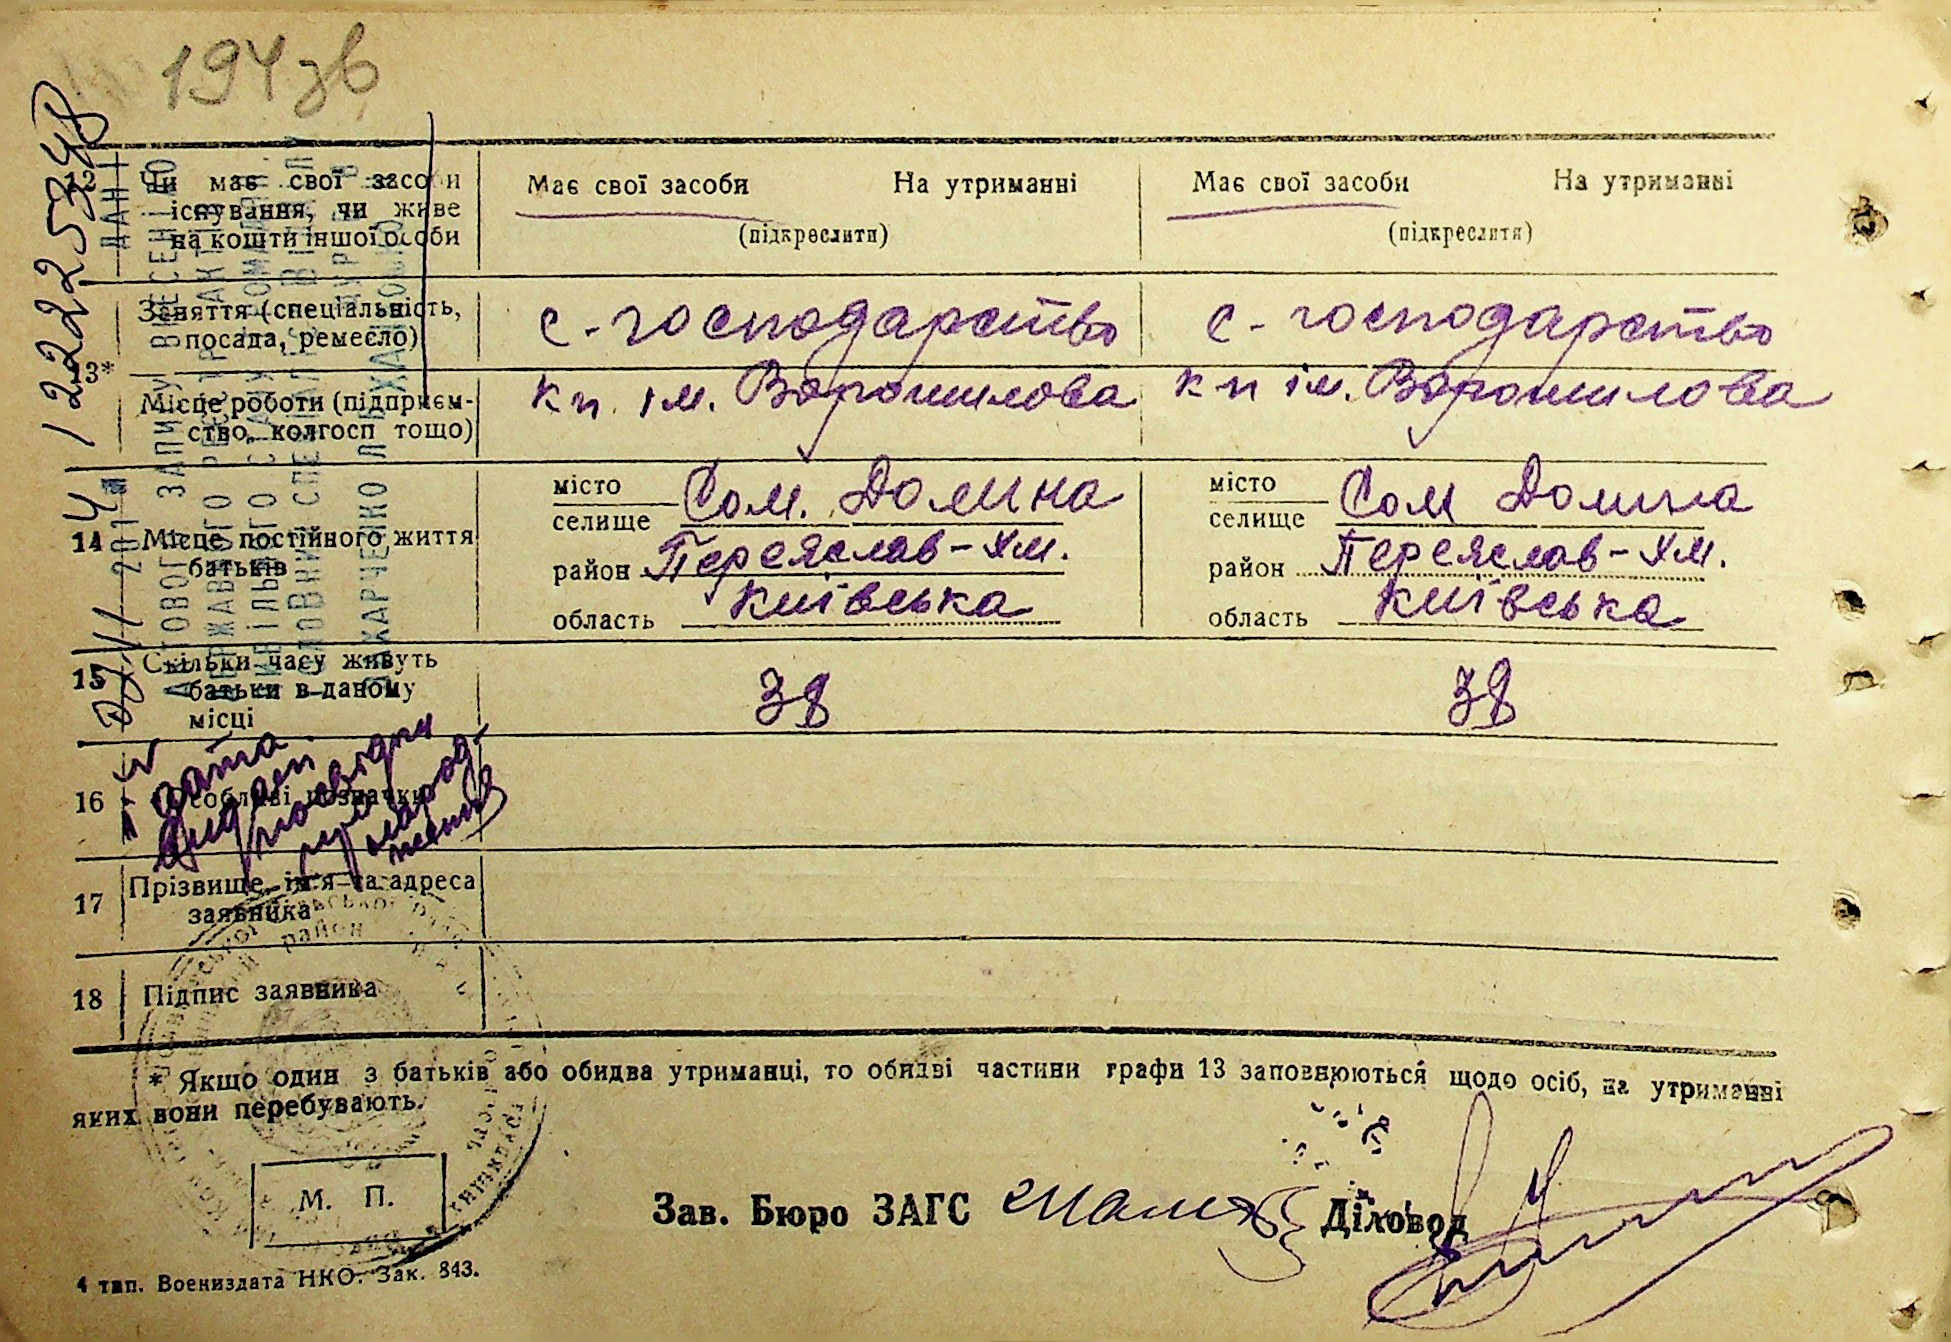 194 зв
12 Чи має свої засоби Має свої засоби На утриманні Має свої засоби На утриманні
існування, чи живе
на кошти іншої особи (підкреслити) (підкреслити)
Заняття (спеціальність, с-господарство с-господарство
посада, ремесло)
13*
Місце роботи (підприєм- кп ім. Ворошилова кп ім. Ворошилова
ство, колгосп тощо)
місто місто
селище Сом. Долина селище Сом Долина
14 Місце постійного життя район Переяслав-Хм. район Переяслав-Хм.
батьків область Київська область Київська
15 Скільки часу живуть 38 38
батьки в даному
місці
16 Особливі позначки
17 Прізвище, ім'я та адреса
заявника
18 Підпис заявника
* Якщо один з батьків або обидва утриманці, то обидві частини графи 13 заповнюються щодо осіб, на утриманні
яких вони перебувають.
М. П.
Зав. Бюро ЗАГС Діловод
4 тип. Воениздата НКО. Зак. 843.
122225348
ДАНІ
АКТОВОГО ЗАПИСУ ВНЕСЕНІ ДО
ДЕРЖАВНОГО РЕЄСТРУ АКТІВ
ЦИВІЛЬНОГО СТАНУ ГРОМАДЯН.
ЗАХАРЧЕНКО
дата
видачі
посвідки
про
народ-
ження
район